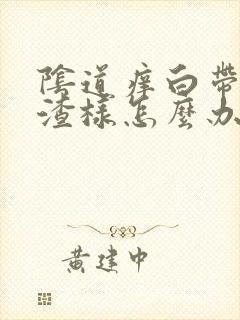 陰道痒白帶
渣樣怎麼办
黄建中